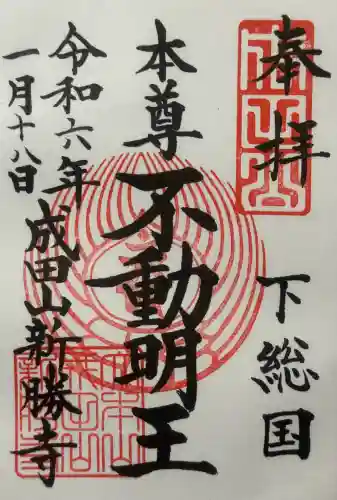 奉拝
下総国
本尊
不動明王
令和六年
一月十八日
成田山新勝寺